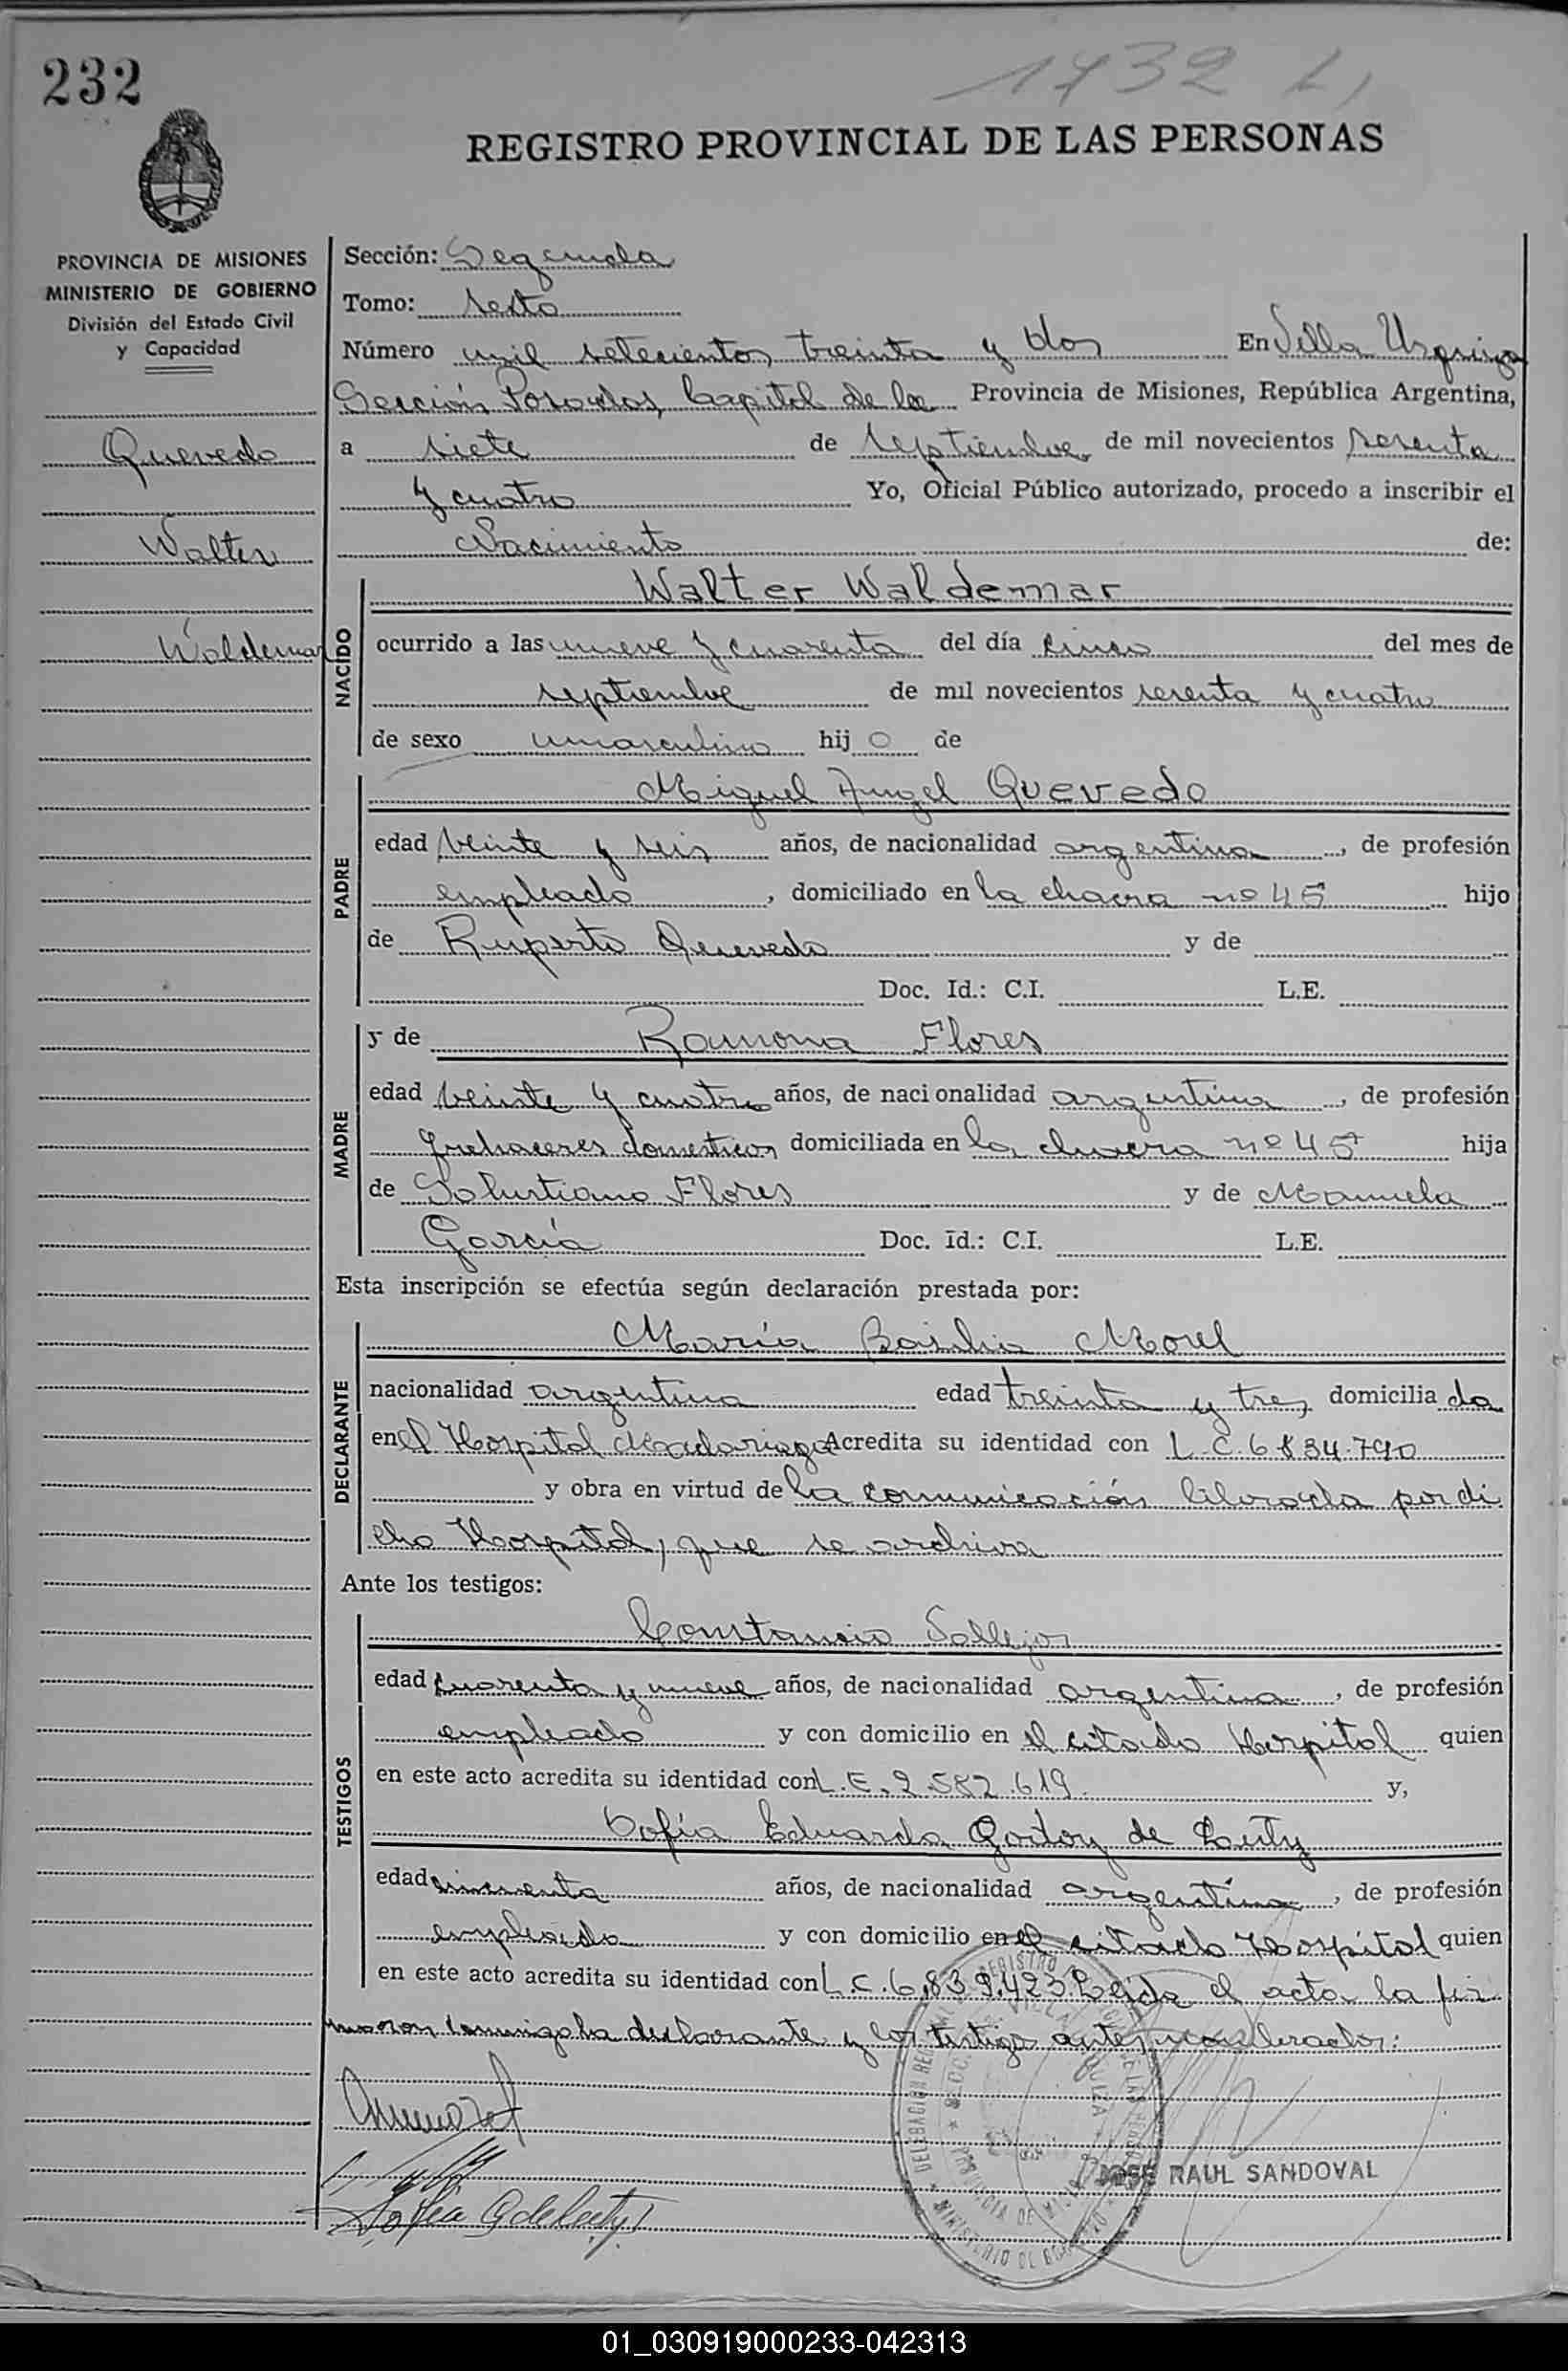 232
1732 L,
REGISTRO PROVINCIAL DE LAS PERSONAS
PROVINCIA DE MISIONES
MINISTERIO DE GOBIERNO
División del Estado Civil
y Capacidad
Quevedo
Walter
Waldemar
Sección: Segunda
Tomo: sexto
Número mil setecientos treinta y dos En Villa Urquiza
Sección Posadas, Capital de la Provincia de Misiones, República Argentina,
a siete de septiembre de mil novecientos sesenta
y cuatro Yo, Oficial Público autorizado, procedo a inscribir el
Nacimiento de:
NACIDO
Walter Waldemar
ocurrido a las nueve y cuarenta del día cinco del mes de
septiembre de mil novecientos sesenta y cuatro
de sexo masculino hijo de
PADRE
Miguel Angel Quevedo
edad veinte y seis años, de nacionalidad argentina, de profesión
empleado, domiciliado en la chacra nº 45 hijo
de Ruperto Quevedo y de
Doc. Id.: C.I. L.E.
MADRE
y de Ramona Flores
edad veinte y cuatro años, de nacionalidad argentina, de profesión
quehaceres domesticos domiciliada en la chacra nº 45 hija
de Salustiano Flores y de Manuela
García Doc. Id.: C.I. L.E.
Esta inscripción se efectúa según declaración prestada por:
DECLARANTE
María Basilia Morel
nacionalidad argentina edad treinta y tres domiciliada
en el Hospital Madariaga Acredita su identidad con L.C. 6.834.790
y obra en virtud de la comunicación librada por di
cho Hospital, que se archiva
Ante los testigos:
TESTIGOS
Constancio Vallejos
edad cuarenta y nueve años, de nacionalidad argentina, de profesión
empleado y con domicilio en el citado Hospital quien
en este acto acredita su identidad con L.E. 2.582.619 y,
Sofía Eduarda Godoy de
edad cincuenta años, de nacionalidad argentina, de profesión
empleada y con domicilio en el citado Hospital quien
en este acto acredita su identidad con L.C. 6.839.423. Leida el acta la fir
maron conmigo la declarante y los testigos antes
JOSE RAUL SANDOVAL
01_030919000233-042313